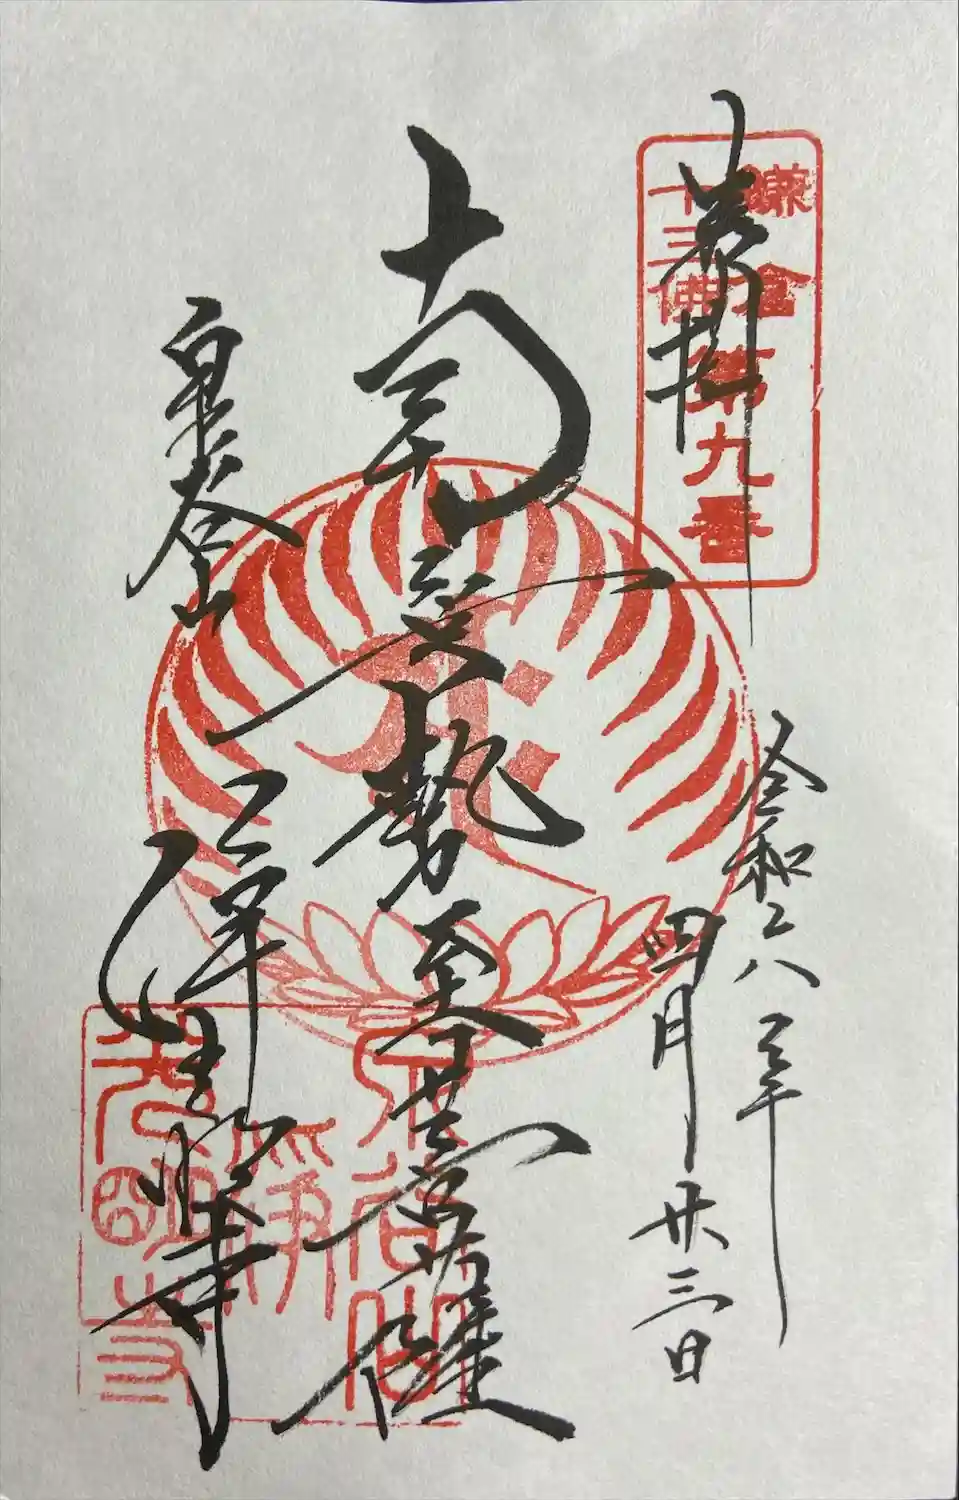 奉拝
鎌倉
十三佛
第九番
令和六年
四月廿三日
南無大勢至菩薩
泉谷山
浄光明寺
泉谷山
浄
光明寺